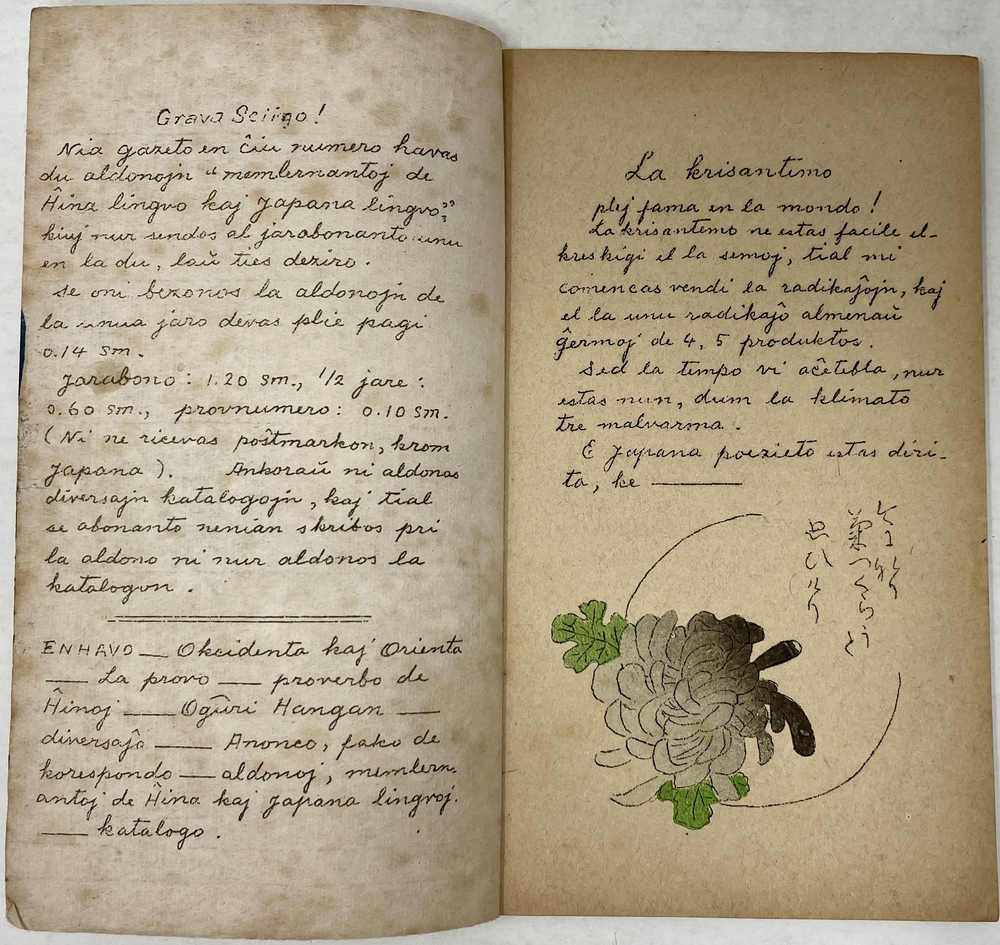 Grava Sciigo!
Nia gazeto en ĉiu numero havas
du aldonojn "memlernantoj de
Ĥina lingvo kaj Japana lingvo";
kiuj nur sendos al jarabonanto unu
en la du, laŭ ties deziro.
se oni bezonos la aldonojn de
la unua jaro devas plie pagi
0.14 Sm.
Jarabono: 1.20 Sm., 1/2 jare:
0.60 Sm., provnumero: 0.10 Sm.
(Ni ne ricevas poŝtmarkon, krom
Japana). Ankoraŭ ni aldonas
diversajn katalogojn, kaj tial
se abonanto nenian skribos pri
la aldono ni nur aldonos la
katalogon.
ENHAVO — Okcidenta kaj Orienta
— La provo — proverbo de
Ĥinoj — Oĝuri Hangan —
diversaĵo — Anonco, fako de
korespondo — aldonoj, memlern-
antoj de Ĥina kaj Japana lingvoj.
— katalogo.
La krisantemo
plej fama en la mondo!
La krisantemo ne estas facile el-
kreskigi el la semoj, tial mi
comencas vendi la radikaĵojn, kaj
el la unu radikaĵo almenaŭ
ĝermoj de 4, 5 produktos.
Sed la tempo vi aĉetebla, nur
estas nun, dum la klimato
tre malvarma.
E Japana poezieto estas diri-
ta, ke —